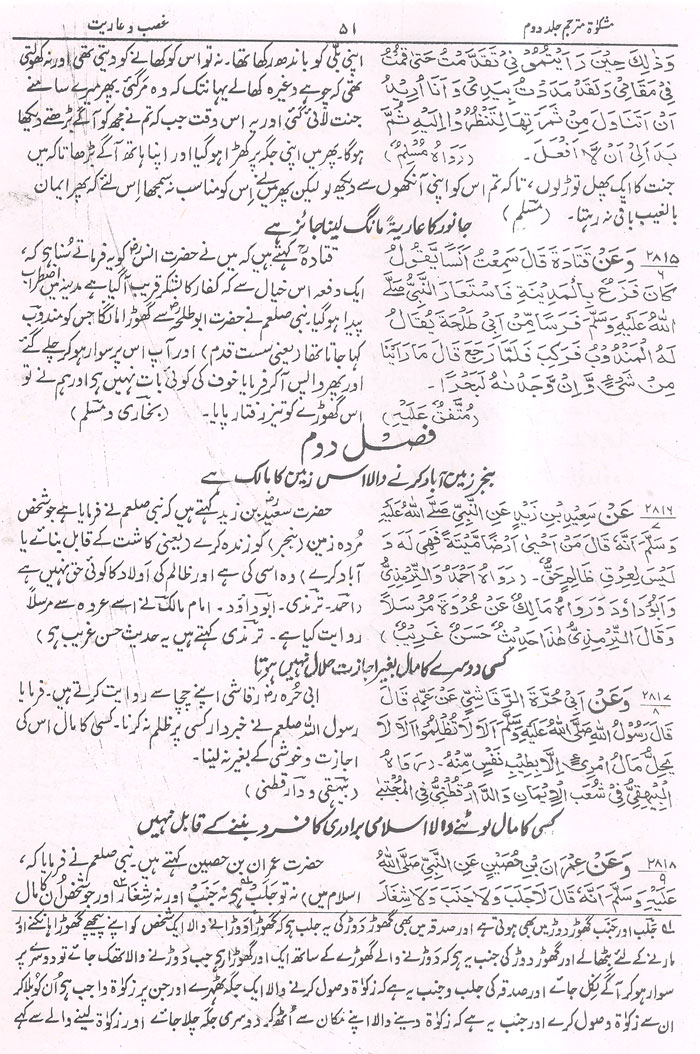 مشکوٰۃ مترجم جلد دوم ۵۱ غصب و عاریت
وَذٰلِكَ حِيْنَ رَاَيْتُمُوْنِيْ تَقَدَّمْتُ حَتّٰى قُمْتُ
فِيْ مَقَامِيْ وَلَقَدْ مَدَدْتُ يَدِيْ وَاَنَا اُرِيْدُ
اَنْ اَتَنَاوَلَ مِنْ ثَمَرَتِهَا لِتَنْظُرُوْا اِلَيْهِ ثُمَّ
بَدَا لِيْ اَنْ لَّا اَفْعَلَ۔ (رَوَاهُ مُسْلِمٌ)
اپنی بلی کو باندھ رکھا تھا۔ نہ تو اس کو کھانے کو دیتی تھی اور نہ کھولتی
تھی کہ چوہے وغیرہ کھالے یہانتک کہ وہ مرگئی۔ پھر میرے سامنے
جنت لائی گئی اور یہ اس وقت جب کہ تم نے مجھ کو آگے بڑھتے دیکھا
ہوگا۔ پھر میں اپنی جگہ پر کھڑا ہوگیا اور اپنا ہاتھ آگے بڑھا تاکہ میں
جنت کا ایک پھل توڑ لوں، تاکہ تم اس کو اپنی آنکھوں سے دیکھ لو لیکن پھر میں نے اس کو مناسب نہ سمجھا اس لئے کہ پھر ایمان
بالغیب باقی نہ رہتا۔ (مسلم)
جانور کا عاریۃً مانگ لینا جائز ہے
۲۸۱۵ / ۶ وَعَنْ قَتَادَةَ قَالَ سَمِعْتُ اَنَسًا يَّقُوْلُ
كَانَ فَزَعٌ بِالْمَدِيْنَةِ فَاسْتَعَارَ النَّبِيُّ صَلَّى
اللهُ عَلَيْهِ وَسَلَّمَ فَرَسًا مِّنْ اَبِيْ طَلْحَةَ يُقَالُ
لَهُ الْمَنْدُوْبُ فَرَكِبَ فَلَمَّا رَجَعَ قَالَ مَا رَاَيْنَا
مِنْ شَيْءٍ وَّاِنْ وَّجَدْنَاهُ لَبَحْرًا۔
(مُتَّفَقٌ عَلَيْهِ)
قتادہؒ کہتے ہیں کہ میں نے حضرت انسؓ کو یہ فرماتے سُنا ہے کہ،
ایک دفعہ اس خیال سے کہ کفار کا لشکر قریب آگیا ہے مدینہ میں اضطراب
پیدا ہوگیا۔ نبی صلعم نے حضرت ابو طلحہؓ سے گھوڑا مانگا جس کو مندوب
کہا جاتا تھا (یعنی سست قدم) اور آپ اس پر سوار ہو کر چلے گئے
اور پھر واپس آکر فرمایا خوف کی کوئی بات نہیں ہی اور ہم نے تو
اس گھوڑے کو تیز رفتار پایا۔ (بخاری و مسلم)
فصل دوم
بنجر زمین آباد کرنے والا اس زمین کا مالک ہے
۲۸۱۶ / ۷ عَنْ سَعِيْدِ بْنِ زَيْدٍ عَنِ النَّبِيِّ صَلَّى اللهُ عَلَيْهِ
وَسَلَّمَ اَنَّهُ قَالَ مَنْ اَحْيٰى اَرْضًا مَّيْتَةً فَهِيَ لَهُ وَ
لَيْسَ لِعِرْقٍ ظَالِمٍ حَقٌّ۔ (رَوَاهُ اَحْمَدُ وَالتِّرْمِذِيُّ
وَاَبُوْ دَاوُدَ وَرَوَاهُ مَالِكٌ عَنْ عُرْوَةَ مُرْسَلًا
وَقَالَ التِّرْمِذِيُّ هٰذَا حَدِيْثٌ حَسَنٌ غَرِيْبٌ)
حضرت سعیدؓ بن زید کہتے ہیں کہ نبی صلعم نے فرمایا ہے جو شخص
مُردہ زمین (بنجر) کو زندہ کرے (یعنی کاشت کے قابل بنائے یا
آباد کرے) وہ اسی کی ہے اور ظالم کی اولاد کا کوئی حق نہیں ہے
(احمد۔ ترمذی۔ ابوداود۔ امام مالک نے اسے عروہ سے مرسلاً
روایت کیا ہے۔ ترمذی کہتے ہیں یہ حدیث حسن غریب ہی)
کسی دوسرے کا مال بغیر اجازت حلال نہیں ہوتا
۲۸۱۷ / ۸ وَعَنْ اَبِيْ حُرَّةَ الرَّقَاشِيِّ عَنْ عَمِّهِ قَالَ
قَالَ رَسُوْلُ اللهِ صَلَّى اللهُ عَلَيْهِ وَسَلَّمَ اَلَا لَا تَظْلِمُوْا اَلَا لَا
يَحِلُّ مَالُ امْرِئٍ اِلَّا بِطِيْبِ نَفْسٍ مِّنْهُ۔ (رَوَاهُ
الْبَيْهَقِيُّ فِيْ شُعَبِ الْاِيْمَانِ وَالدَّارَقُطْنِيُّ فِي الْمُجْتَبٰى
ابی حُرہ رقاشی اپنے چچا سے روایت کرتے ہیں۔ فرمایا
رسول اللہ صلعم نے خبردار کسی پر ظلم نہ کرنا۔ کسی کا مال اس کی
اجازت و خوشی کے بغیر نہ لینا۔
(بیہقی و دارقطنی)
کسی کا مال لوٹنے والا اسلامی برادری کا فرد بننے کے قابل نہیں
۲۸۱۸ / ۹ وَعَنْ عِمْرَانَ بْنِ حُصَيْنٍ عَنِ النَّبِيِّ صَلَّى اللهُ
عَلَيْهِ وَسَلَّمَ اَنَّهُ قَالَ لَا جَلَبَ وَلَا جَنَبَ وَلَا شِغَارَ
حضرت عمران بن حصین کہتے ہیں۔ نبی صلعم نے فرمایا کہ،
اسلام میں) نہ تو جلب ہی نہ جنب اور نہ شغار اور جو شخص لوٹ کا مال
لہ جلب اور جنب گھوڑ دوڑ میں بھی ہوتی ہے اور صدقہ میں بھی گھوڑ دوڑ کی یہ جلب ہی کہ گھوڑا دوڑانے والا ایک شخص کو اپنے پیچھے گھوڑا ہانکنے اور
مارنے کے لئے بٹھالے اور گھوڑ دوڑ کی جنب یہ ہی کہ دوڑنے والے گھوڑے کے ساتھ ایک اور گھوڑا ہو جب دوڑنے والا تھک جائے تو دوسرے پر
سوار ہو کر آگے نکل جائے اور صدقہ کی جلب و جنب یہ ہے کہ زکوٰۃ وصول کرنے والا ایک جگہ ٹھہرے اور جن پر زکوٰۃ واجب ہی اُن کو بلا کر
ان سے زکوٰۃ وصول کرے اور جنب یہ ہے کہ زکوٰۃ دینے والا اپنے مکان سے اُٹھ کر دوسری جگہ چلا جائے اور زکوٰۃ لینے والے سے کہے